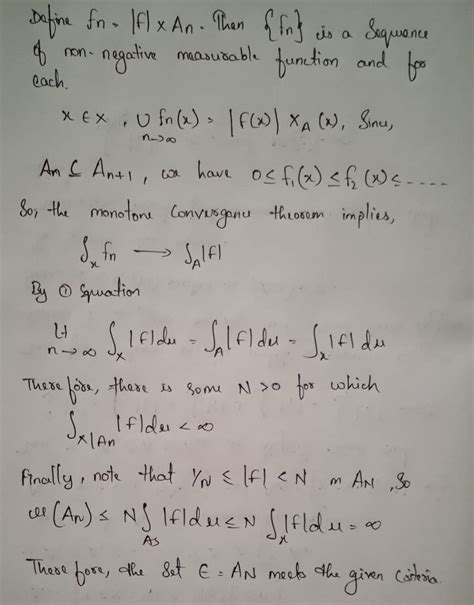 Define fn = |f| χ An. Then {fn} is a Sequence
of non-negative measurable function and for
each.
x ∈ x, U fn(x) = |f(x)| χ_A (x), Since,
n→∞
An ⊆ An+1, we have 0 ≤ f₁(x) ≤ f₂(x) ≤ ....
So, the monotone Convergance theorem implies,
∫_x fn ⟶ ∫_A |f|
By ① Equation
Lt n→∞ ∫_x |f|du = ∫_A |f|du = ∫_x |f|du
Therefore, there is some N>0 for which
∫_x|An |f|du < ∞
Finally, note that 1/N ≤ |f| < N m AN, So
u(An) ≤ N ∫_As |f|du ≤ N ∫_x |f|du = ∞
Therefore, the Set E = AN meets the given Criteria.